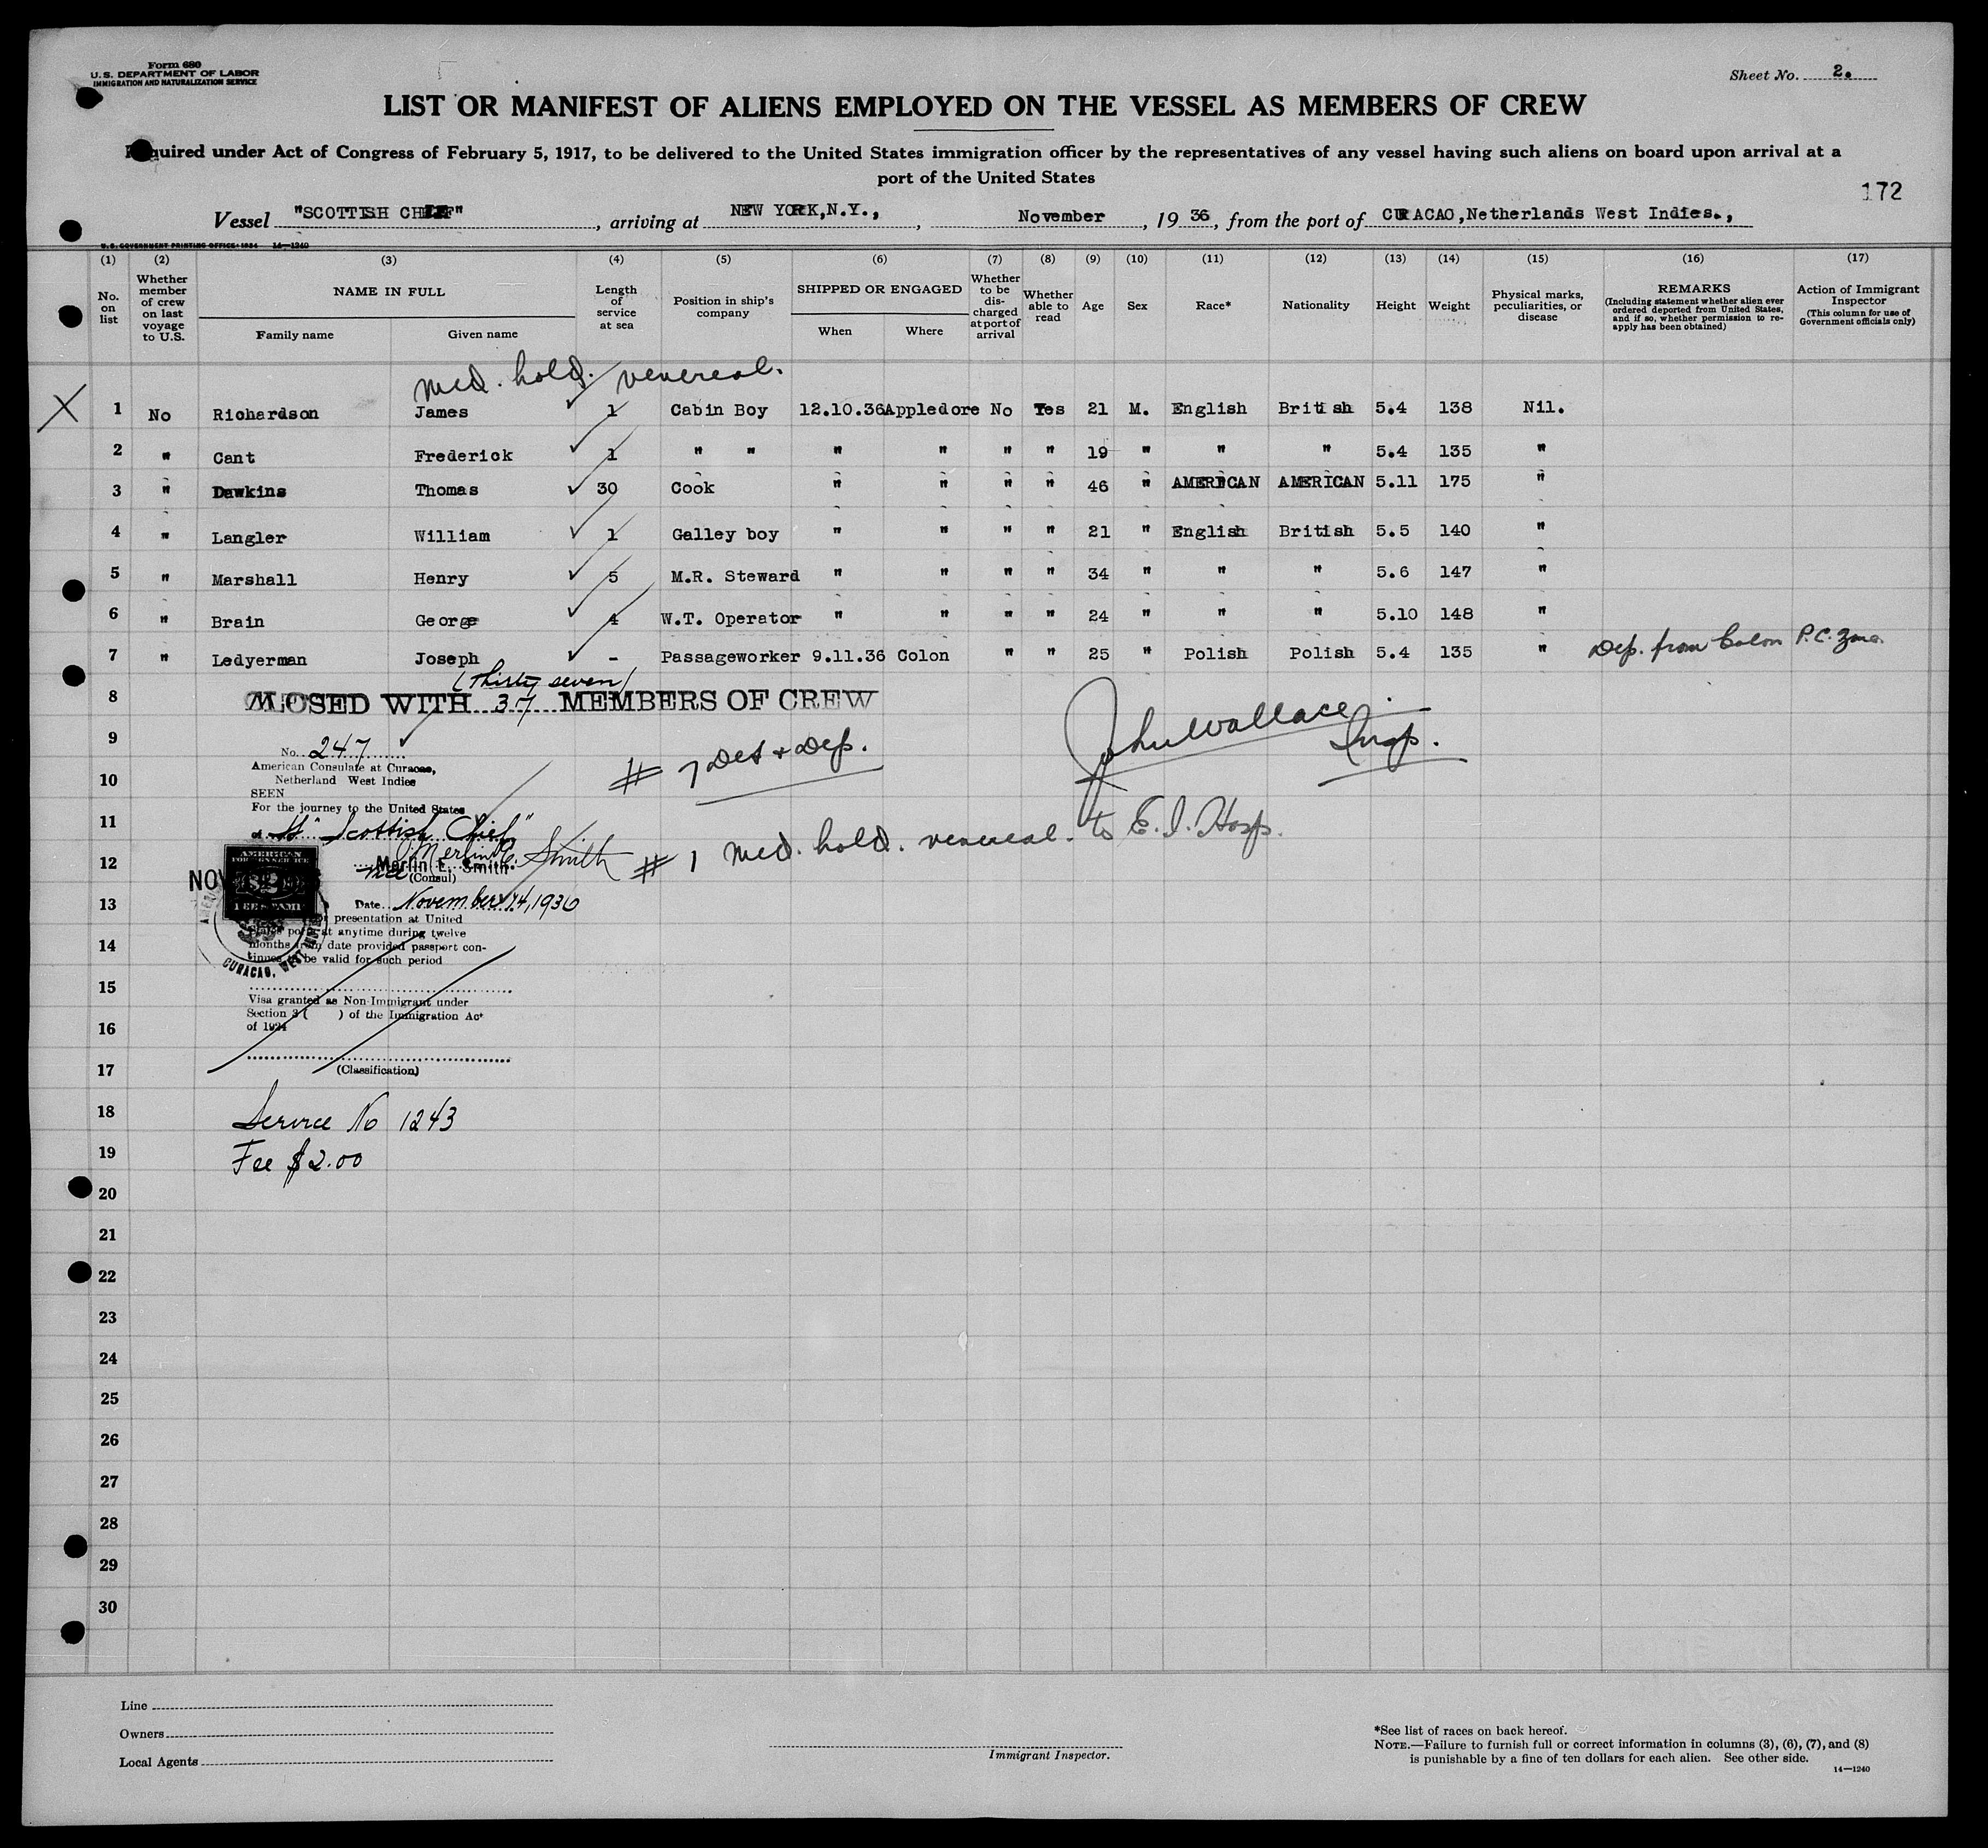 Form 680
U.S. DEPARTMENT OF LABOR
IMMIGRATION AND NATURALIZATION SERVICE
Sheet No. 2.
LIST OR MANIFEST OF ALIENS EMPLOYED ON THE VESSEL AS MEMBERS OF CREW
Required under Act of Congress of February 5, 1917, to be delivered to the United States immigration officer by the representatives of any vessel having such aliens on board upon arrival at a
port of the United States
172
Vessel "SCOTTISH CHIEF" , arriving at NEW YORK,N.Y., , November , 19 36 , from the port of CURACAO,Netherlands West Indies.,
U.S. GOVERNMENT PRINTING OFFICE: 1934 14—1240
(1) (2) (3) (4) (5) (6) (7) (8) (9) (10) (11) (12) (13) (14) (15) (16) (17)
No. on list
Whether member of crew on last voyage to U.S.
NAME IN FULL
Family name
Given name
Length of service at sea
Position in ship's company
SHIPPED OR ENGAGED
When
Where
Whether to be discharged at port of arrival
Whether able to read
Age
Sex
Race*
Nationality
Height
Weight
Physical marks, peculiarities, or disease
REMARKS
(Including statement whether alien ever ordered deported from United States, and if so, whether permission to reapply has been obtained)
Action of Immigrant Inspector
(This column for use of Government officials only)
med. hold. venereal.
X 1 No Richardson James ✓ 1 Cabin Boy 12.10.36 Appledore No Yes 21 M. English British 5.4 138 Nil.
2 " Cant Frederick ✓ 1 " " " " " " 19 " " " 5.4 135 "
3 " Dawkins Thomas ✓ 30 Cook " " " " 46 " AMERICAN AMERICAN 5.11 175 "
4 " Langler William ✓ 1 Galley boy " " " " 21 " English British 5.5 140 "
5 " Marshall Henry ✓ 5 M.R. Steward " " " " 34 " " " 5.6 147 "
6 " Brain George ✓ 4 W.T. Operator " " " " 24 " " " 5.10 148 "
7 " Ledyerman Joseph ✓ - Passageworker 9.11.36 Colon " " 25 " Polish Polish 5.4 135 " Dep. from Colon P.C. Zone
(Thirty seven)
8 CLOSED WITH 37 MEMBERS OF CREW
John Wallace
Insp.
9
No. 247
# 7 Det & Dep.
American Consulate at Curacao,
10
Netherland West Indies
SEEN
For the journey to the United States
11
of "Scottish Chief"
# 1 med. hold. venereal. to E.I. Hosp.
12
Merlin E. Smith
Merlin E. Smith
(Consul)
NOV
AMERICAN
FOREIGN SERVICE
$2
FEE STAMP
13
Date November 14, 1936
for presentation at United
States port at anytime during twelve
14
months from date provided passport con-
tinues to be valid for such period
CURACAO, WEST INDIES
15
Visa granted as Non-Immigrant under
Section 3 ( ) of the Immigration Act
16
of 1924
17
(Classification)
18
Service No 1243
19
Fee $2.00
20
21
22
23
24
25
26
27
28
29
30
Line
Owners
Local Agents
Immigrant Inspector.
*See list of races on back hereof.
NOTE.—Failure to furnish full or correct information in columns (3), (6), (7), and (8)
is punishable by a fine of ten dollars for each alien. See other side.
14—1240